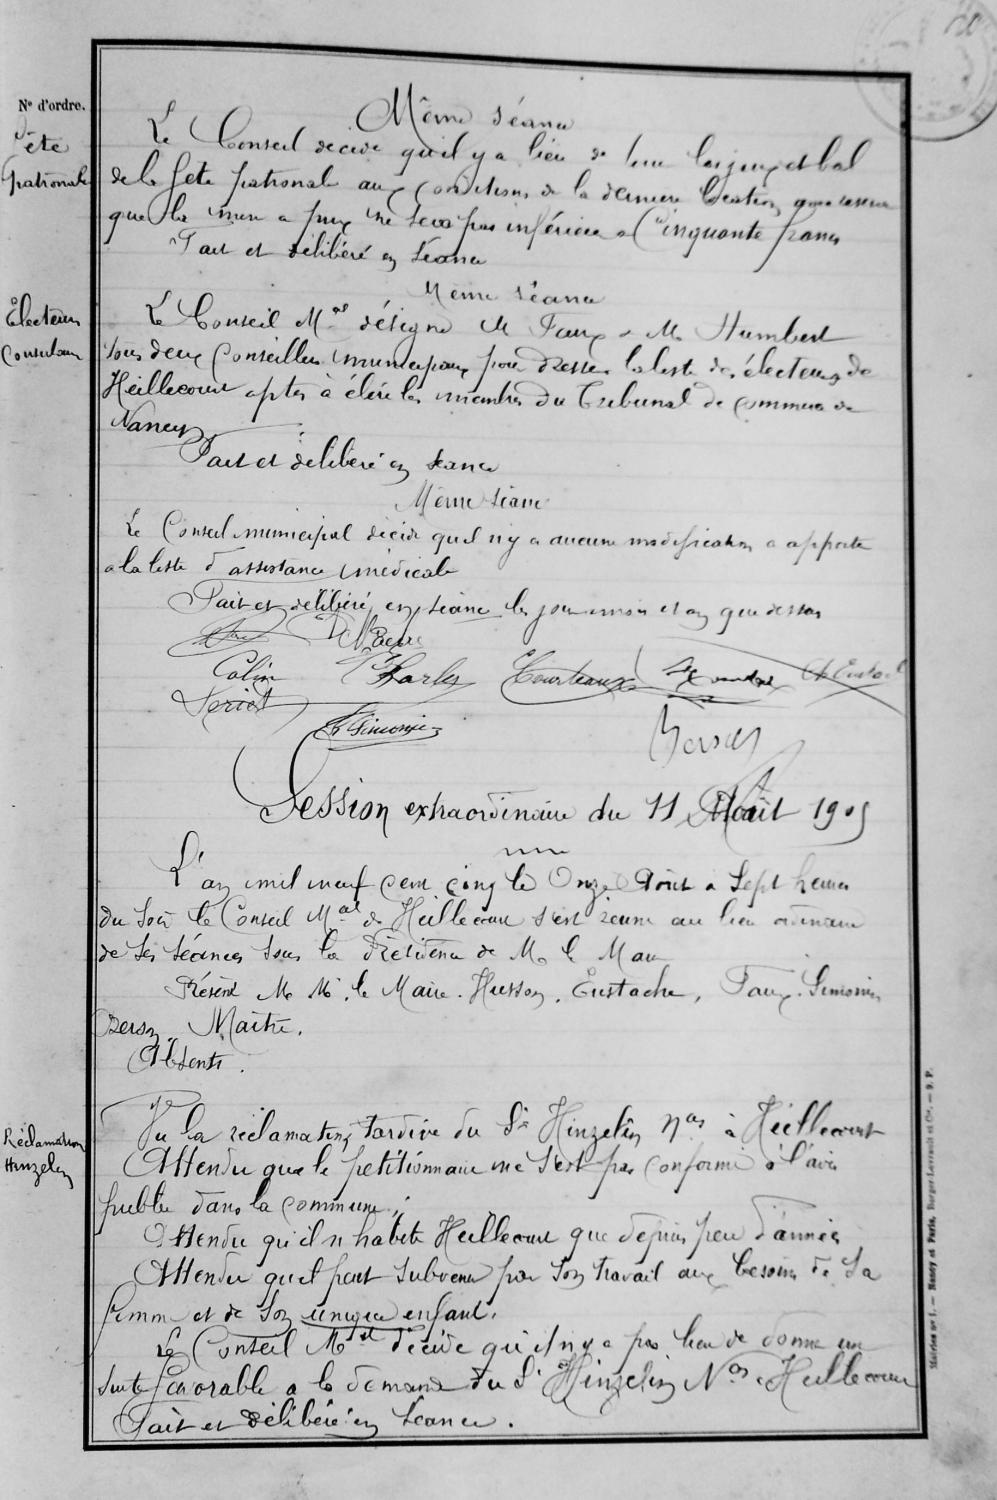 N° d'ordre.
Fête
patronale
Même séance
Le Conseil décide qu'il y a lieu de louer les jeux et bal
de la fete patronale aux conditions de la derniere location
que la mise a prix ne sera pas inférieure a Cinquante francs
Fait et délibéré en séance
Electeurs
Consulaires
Même séance
Le Conseil Mal désigne M Faux & M. Humbert
tous deux Conseillers municipaux pour dresser la liste des électeurs de
Heillecourt aptes à élire les membres du Tribunal de commerce de
Nancy
Fait et délibéré en séance
Même séance
Le Conseil municipal décide qu'il n'y a aucune modification a apporter
a la liste d'assistance médicale
Fait et délibéré en séance les jour mois et an que dessus
Colin Charles Courteaux Ch Eustache
Simonin
Session extraordinaire du 11 Août 1905
L'an mil neuf cent cinq le Onze Août à Sept heures
du soir le Conseil Mal de Heillecourt s'est réuni au lieu ordinaire
de ses séances sous la Présidence de M. le Maire
Présent M. M. le Maire. Husson, Eustache, Faux. Simonin
Maître.
Absents.
Réclamation
Hinzelin
Vu la réclamation tardive du Sr Hinzelin Nas à Heillecourt
Attendu que le petitionnaire ne s'est pas conformé à l'avis
publié dans la commune;
Attendu qu'il n'habite Heillecourt que depuis peu d'années
Attendu qu'il peut subvenir par son travail aux besoins de sa
femme et de son unique enfant.
Le Conseil Mal décide qu'il n'y a pas lieu de donner une
suite favorable a la demande du Sr Hinzelin Nas à Heillecourt
Fait et délibéré en séance.
Mairies n° 1. — Nancy et Paris, Berger-Levrault et Cie. — 9. P.